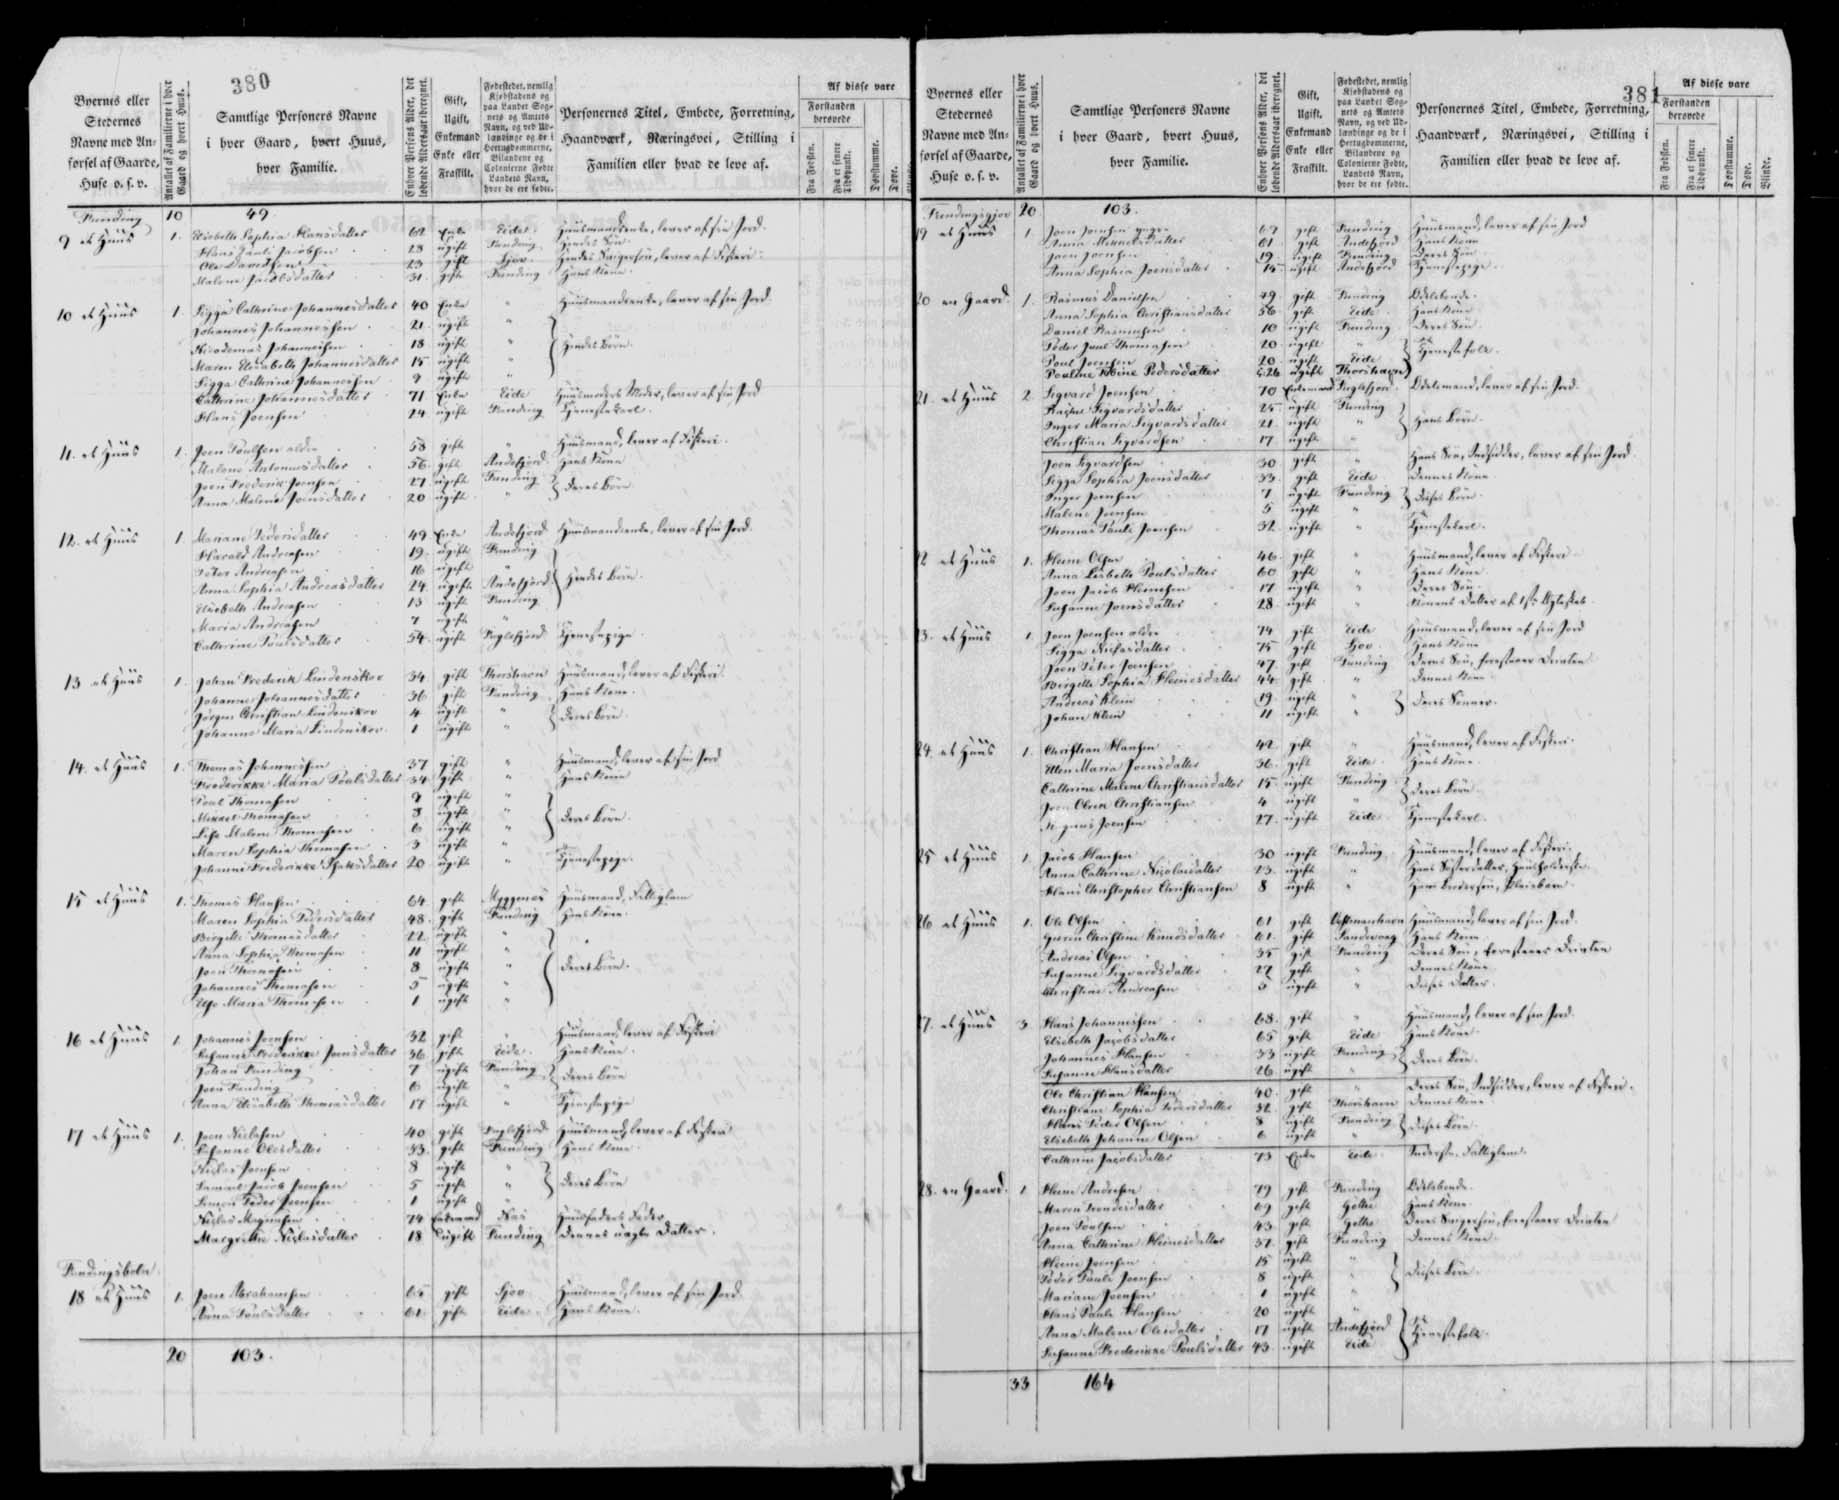 380
Byernes eller Stedernes Navne med Anførsel af Gaarde, Huse o. s. v.
Antallet af Familierne i hver Gaard og hvert Huus.
Samtlige Personers Navne i hver Gaard, hvert Huus, hver Familie.
Enhver Persons Alder, det løbende Aldersaar iberegnet.
Gift, Ugift, Enkemand Enke eller Fraskilt.
Fødestedet, nemlig Kjøbstadens og paa Landet Sognets og Amtets Navn, og ved Udlændinge og de i Hertugdømmerne, Bilandene og Colonierne Fødte Landets Navn, hvor de ere fødte.
Personernes Titel, Embede, Forretning, Haandværk, Næringsvei, Stilling i Familien eller hvad de leve af.
Af disse vare
Forstanden berøvede
Fra Fødsten.
Fra et senere Tidspunkt.
Døvstumme.
Døve.
Funding 10 49.
9 et Huus 1. Elsebeth Sophia Hansdatter 62 Enke Eide Huusmandsenke, lever af sin Jord.
Hans Pauli Jacobsen 28 ugift Funding Hendes Søn
Ole Davidsen 23 gift Hendes Svigersøn, lever af Fiskeri
Malene Jacobsdatter 31. gift Funding Hans Kone
10 et Huus 1. Sigga Cathrine Johannesdatter 40 Enke " Huusmandsenke, lever af sin Jord
Johannes Johannessen 21 ugift "
Nicodemus Johannessen 18 ugift " Hendes Børn.
Maren Elisabeth Johannesdatter 15 ugift "
Sigga Cathrine Johannessen 9 ugift "
Cathrine Johannesdatter 71 Enke Eide Huusmoders Moder, lever af sin Jord
Hans Joensen 24 ugift Funding Tjenestekarl.
11. et Huus 1. Joen Poulsen ældre 58 gift " Huusmand, lever af Fiskeri.
Malene Antoniusdatter 56. gift Andefjord Hans Kone
Joen Frederik Joensen 27 ugift Funding Deres Børn
Anna Malene Joensdatter 20 ugift "
12. et Huus 1. Mariane Pedersdatter 49 Enke Andefjord Huusmandsenke, lever af sin Jord.
Harald Andreasen 19. ugift Funding
Peter Andreasen 16 ugift "
Anna Sophia Andreasdatter 24. ugift Andefjord Hendes Børn.
Elsebeth Andreasen 13 ugift Funding
Maria Andreasen 7 ugift "
Cathrine Poulsdatter 54. ugift Fuglefjord Tjenestepige.
13 et Huus 1. Johan Frederik Lindenskov 34 gift Thorshavn Huusmand, lever af Fiskeri.
Johanne Johannesdatter 36 gift Funding Hans Kone
Jørgen Christian Lindenskov 4 ugift " Deres Børn.
Johanne Maria Lindenskov 1 ugift "
14. et Huus 1. Thomas Johannessen 37 gift " Huusmand, lever af sin Jord
Frederikke Maria Poulsdatter 34. gift " Hans Kone
Poul Thomasen 9 ugift "
Mikkel Thomasen 8 ugift " Deres Børn.
Malene Thomasen 6 ugift "
Maren Sophia Thomasen 3 ugift "
Johanne Frederikke 20 ugift " Tjenestepige.
15 et Huus 1. Thomas Hansen 64. gift Myggenæs Huusmand, Fattiglem
Maren Sophia Pedersdatter 48. gift Funding Hans Kone.
Birgitte Thomasdatter 22. ugift "
Anna Sophia Thomasen 11 ugift "
Joen Thomasen 8 ugift " Deres Børn.
Johannes Thomasen 5 ugift "
Maria Thomasen 1 ugift "
16 et Huus 1. Johannes Joensen 32 gift " Huusmand, lever af Fiskeri
Susanne Frederikke Joensdatter 36 gift Eide. Hans Kone.
Johan Funding 7 ugift Funding Deres Børn
Joen Funding 6 ugift "
Anna Elisabeth Thomasdatter 17 ugift " Tjenestepige
17 et Huus 1. Joen Niclasen 40 gift Fuglefjord Huusmand, lever af Fiskeri
Susanne Olesdatter 33. gift Funding Hans Kone.
Niclas Joensen 8 ugift "
Samuel Jacob Joensen 5 ugift " Deres Børn
Simon Peder Joensen 1 ugift "
Niclas Magnusen 74 Enkemand Næs Huusfaders Fader.
Margrethe Niclasdatter 18 ugift Funding Dennes Datter.
Fundingsbotn.
18 et Huus 1. Joen Abrahamsen 65 gift Huusmand, lever af sin Jord
Anna Poulsdatter 61. gift Eide Hans Kone.
20 103.
381
Byernes eller Stedernes Navne med Anførsel af Gaarde, Huse o. s. v.
Antallet af Familierne i hver Gaard og hvert Huus.
Samtlige Personers Navne i hver Gaard, hvert Huus, hver Familie.
Enhver Persons Alder, det løbende Aldersaar iberegnet.
Gift, Ugift, Enkemand Enke eller Fraskilt.
Fødestedet, nemlig Kjøbstadens og paa Landet Sognets og Amtets Navn, og ved Udlændinge og de i Hertugdømmerne, Bilandene og Colonierne Fødte, Landets Navn, hvor de ere fødte.
Personernes Titel, Embede, Forretning, Haandværk, Næringsvei, Stilling i Familien eller hvad de leve af.
Af disse vare
Forstanden berøvede
Fra Fødsten.
Fra et senere Tidspunkt.
Døvstumme.
Døve.
Blinde.
20 103.
19 et Huus 1. Joen Joensen yngre 67 gift Funding Huusmand, lever af sin Jord
Anna 61. gift Andefjord Hans Kone
Joen Joensen 19. ugift Funding Deres Søn
Anna Sophia Joensdatter 15 ugift Andefjord Tjenestepige.
20 en Gaard. 1. Rasmus Danielsen 49. gift Funding Odelsbonde.
Anna Sophia Christiansdatter 56 gift Eide Hans Kone
Daniel Rasmusen 10 ugift Funding Deres Søn.
Peder Juul Thomasen 20 ugift "
Poul Joensen 20 ugift Eide Tjenestefolk.
Pouline Pedersdatter 26 ugift Thorshavn
21. et Huus 2. Sigvard Joensen 70 Enkemand Fuglefjord. Odelsmand, lever af sin Jord.
Sigvardsdatter 25 ugift Funding
Inger Maria Sigvardsdatter 21. ugift " Hans Børn.
Christian Sigvardsen 17 ugift "
Joen Sigvardsen 30 gift " Hans Søn, Indsidder, lever af sin Jord.
Sigga Sophia Joensdatter 33. gift Eide Dennes Kone
Inger Joensen 7 ugift Funding Disses Børn.
Malene Joensen 5 ugift "
Thomas Pauli Joensen 32 ugift " Tjenestekarl.
22 et Huus 1. Heine Olsen 46. gift " Huusmand, lever af Fiskeri
Anna Lisbeth Poulsdatter 60 gift " Hans Kone
Joen Jacob Heinesen 17 ugift " Deres Søn.
Susanne Joensdatter 28. ugift " Konens Datter af 1ste Ægteskab.
23. et Huus 1. Joen Joensen ældre 74 gift Eide Huusmand, lever af sin Jord
Sigga Niclasdatter 75 gift Hans Kone
Joen Peter Joensen 47. gift Funding Deres Søn, forestaaer Driften
Birgitte Sophia Heinesdatter 44. gift " Dennes Kone
Andreas Klein 19 ugift " Deres Sønner.
Johan Klein 11 ugift "
24. et Huus 1. Christian Hansen 42. gift " Huusmand, lever af Fiskeri.
Ellen Maria Joensdatter 36. gift Eide. Hans Kone.
Cathrine Malene Christiansdatter 15 ugift Funding Deres Børn.
Joen Christiansen 4 ugift "
Magnus Joensen 27. ugift Eide Tjenestekarl.
25 et Huus 1. Jacob Hansen 30 ugift Funding. Huusmand, lever af Fiskeri.
Anna Cathrine Nicolaidatter 23. ugift " Hans Søsterdatter, Huusholderske.
Hans Christopher Christiansen 8 ugift " Hans Brodersøn, Pleiebarn.
26 et Huus 1. Ole Olsen 61 gift Vestmannhavn Huusmand, lever af sin Jord.
Christine Knudsdatter 61. gift Sandevaag Hans Kone
Andreas Olsen 35 gift Funding Deres Søn, forestaaer Driften
Susanne Sigvardsdatter 27 gift " Dennes Kone
Christine Andreasen 3 ugift " Disses Datter.
27. et Huus 3. Hans Johannessen 68. gift " Huusmand, lever af sin Jord.
Elsebeth Jacobsdatter 65 gift Eide Hans Kone.
Johannes Hansen 33 ugift Funding Deres Børn.
Susanne Hansdatter 26 ugift "
Ole Christian Hansen 40. gift " Deres Søn, Indsidder, lever af Fiskeri.
Christiane Sophia Pedersdatter 32 gift Thorshavn Dennes Kone
Hans Peder Olsen 8 ugift Funding Disses Børn.
Elsebeth Johanne Olsen 6 ugift "
Cathrine Jacobsdatter 73 Enke Eide. Inderste, Fattiglem.
28. en Gaard. 1. Heine Andreasen 79 gift Funding Odelsbonde.
Maren 69 gift Gøthe Hans Kone.
Joen Poulsen 43. gift Gøthe Deres Svigersøn, forestaaer Driften
Anna Cathrine Heinesdatter 37. gift Funding Dennes Kone.
Heine Joensen 15 ugift "
Peder Pauli Joensen 8 ugift " Disses Børn.
Mariane Joensen 1 ugift "
Hans Pauli Hansen 20 ugift "
Anna Malene Olesdatter 17 ugift Andefjord Tjenestefolk.
Susanne Frederikke Poulsdatter 43. ugift Eide
33 164